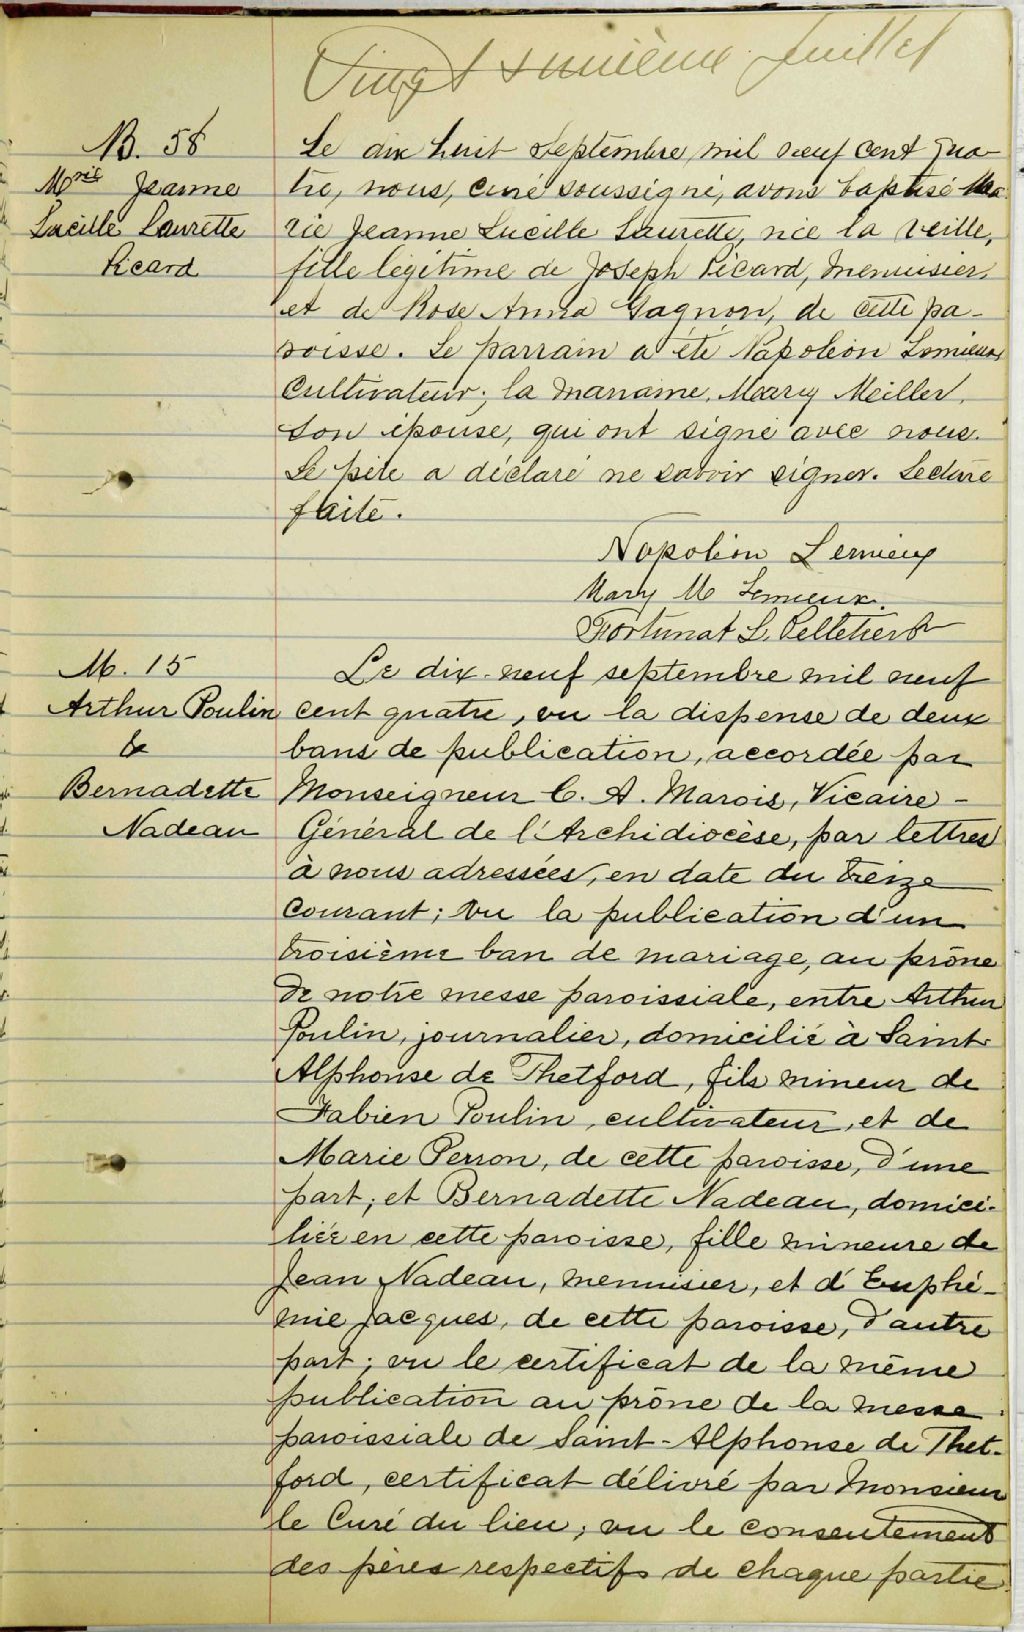 Vingt sunième feuillet
B. 58
Mrie Jeanne
Lucille Laurette
Picard
Le dix huit Septembre mil neuf cent qua-
tre, nous, curé soussigné, avons baptisé Ma
rie Jeanne Lucille Laurette, née la veille,
fille légitime de Joseph Picard, menuisier,
et de Rose Anna Gagnon, de cette pa-
roisse. Le parrain a été Napoléon Lemieux
Cultivateur; la marraine, Mary Meiller,
son épouse, qui ont signé avec nous.
Le père a déclaré ne savoir signer. Lecture
faite.
Napoléon Lemieux
Mary M Lemieux.
Fortunat L. Pelletier
M. 15
Arthur Poulin
&
Bernadette
Nadeau
Le dix-neuf septembre mil neuf
cent quatre, vu la dispense de deux
bans de publication, accordée par
Monseigneur C. A. Marois, Vicaire-
Général de l'Archidiocèse, par lettres
à nous adressées, en date du treize
courant; vu la publication d'un
troisième ban de mariage, au prône
de notre messe paroissiale, entre Arthur
Poulin, journalier, domicilié à Saint-
Alphonse de Thetford, fils mineur de
Fabien Poulin, cultivateur, et de
Marie Perron, de cette paroisse, d'une
part; et Bernadette Nadeau, domici-
liée en cette paroisse, fille mineure de
Jean Nadeau, menuisier, et d'Euphé-
mie Jacques, de cette paroisse, d'autre
part; vu le certificat de la même
publication au prône de la messe
paroissiale de Saint-Alphonse de Thet-
ford, certificat délivré par Monsieur
le Curé du lieu; vu le consentement
des pères respectifs de chaque partie